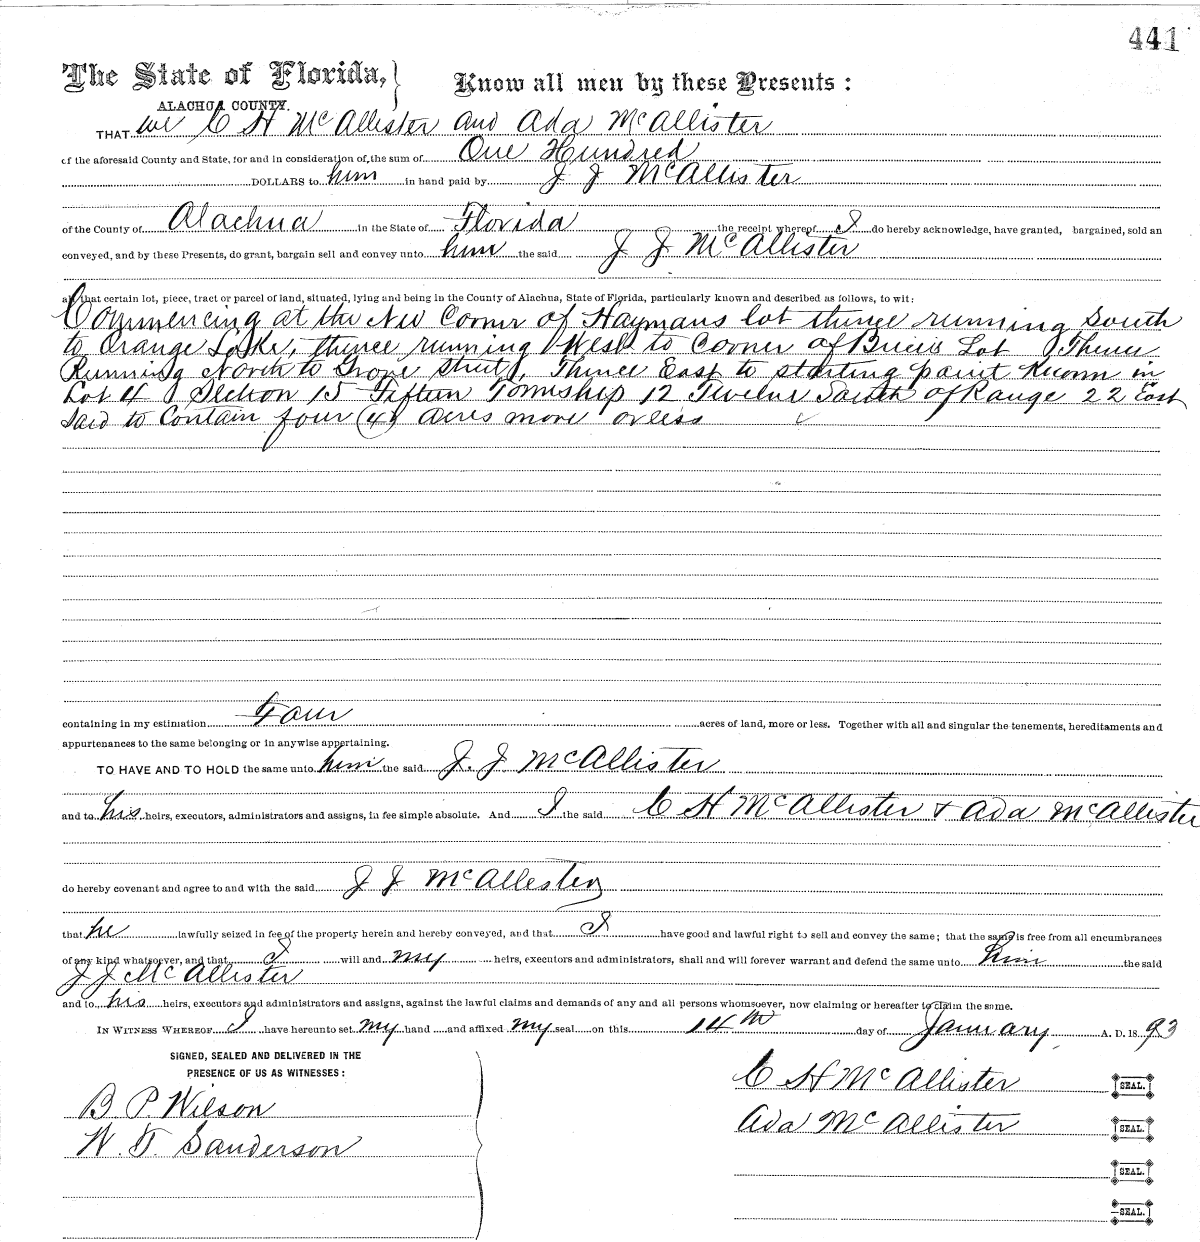 441
The State of Florida,
Know all men by these Presents :
ALACHUA COUNTY.
THAT we C H McAllister and Ada McAllister
of the aforesaid County and State, for and in consideration of the sum of One Hundred
DOLLARS to him in hand paid by J J McAllister
of the County of Alachua in the State of Florida the receipt whereof I do hereby acknowledge, have granted, bargained, sold an
conveyed, and by these Presents, do grant, bargain sell and convey unto him the said J J McAllister
all that certain lot, piece, tract or parcel of land, situated, lying and being in the County of Alachua, State of Florida, particularly known and described as follows, to wit:
Commencing at the NW Corner of Haymans lot thence running South
to Orange Lake, thence running West to Corner of Lot Thence
Running North to Grove Street, Thence East to starting point Known in
Lot 4 Section 15 Fifteen Township 12 Twelve South of Range 22 East
Said to Contain four (4) acres more or less
containing in my estimation Four acres of land, more or less. Together with all and singular the tenements, hereditaments and
appurtenances to the same belonging or in anywise appertaining.
TO HAVE AND TO HOLD the same unto him the said J. J McAllister
and to his heirs, executors, administrators and assigns, in fee simple absolute. And I the said C H McAllister & Ada McAllister
do hereby covenant and agree to and with the said J J McAllester
that he lawfully seized in fee of the property herein and hereby conveyed, and that I have good and lawful right to sell and convey the same; that the same is free from all encumbrances
of any kind whatsoever, and that I will and my heirs, executors and administrators, shall and will forever warrant and defend the same unto him the said
J J McAllister
and to his heirs, executors and administrators and assigns, against the lawful claims and demands of any and all persons whomsoever, now claiming or hereafter to claim the same.
IN WITNESS WHEREOF I have hereunto set my hand and affixed my seal on this 14th day of January A. D. 18 93
SIGNED, SEALED AND DELIVERED IN THE
PRESENCE OF US AS WITNESSES :
C H McAllister SEAL.
B. P. Wilson
Ada McAllister SEAL.
W. T. Sanderson
SEAL.
SEAL.